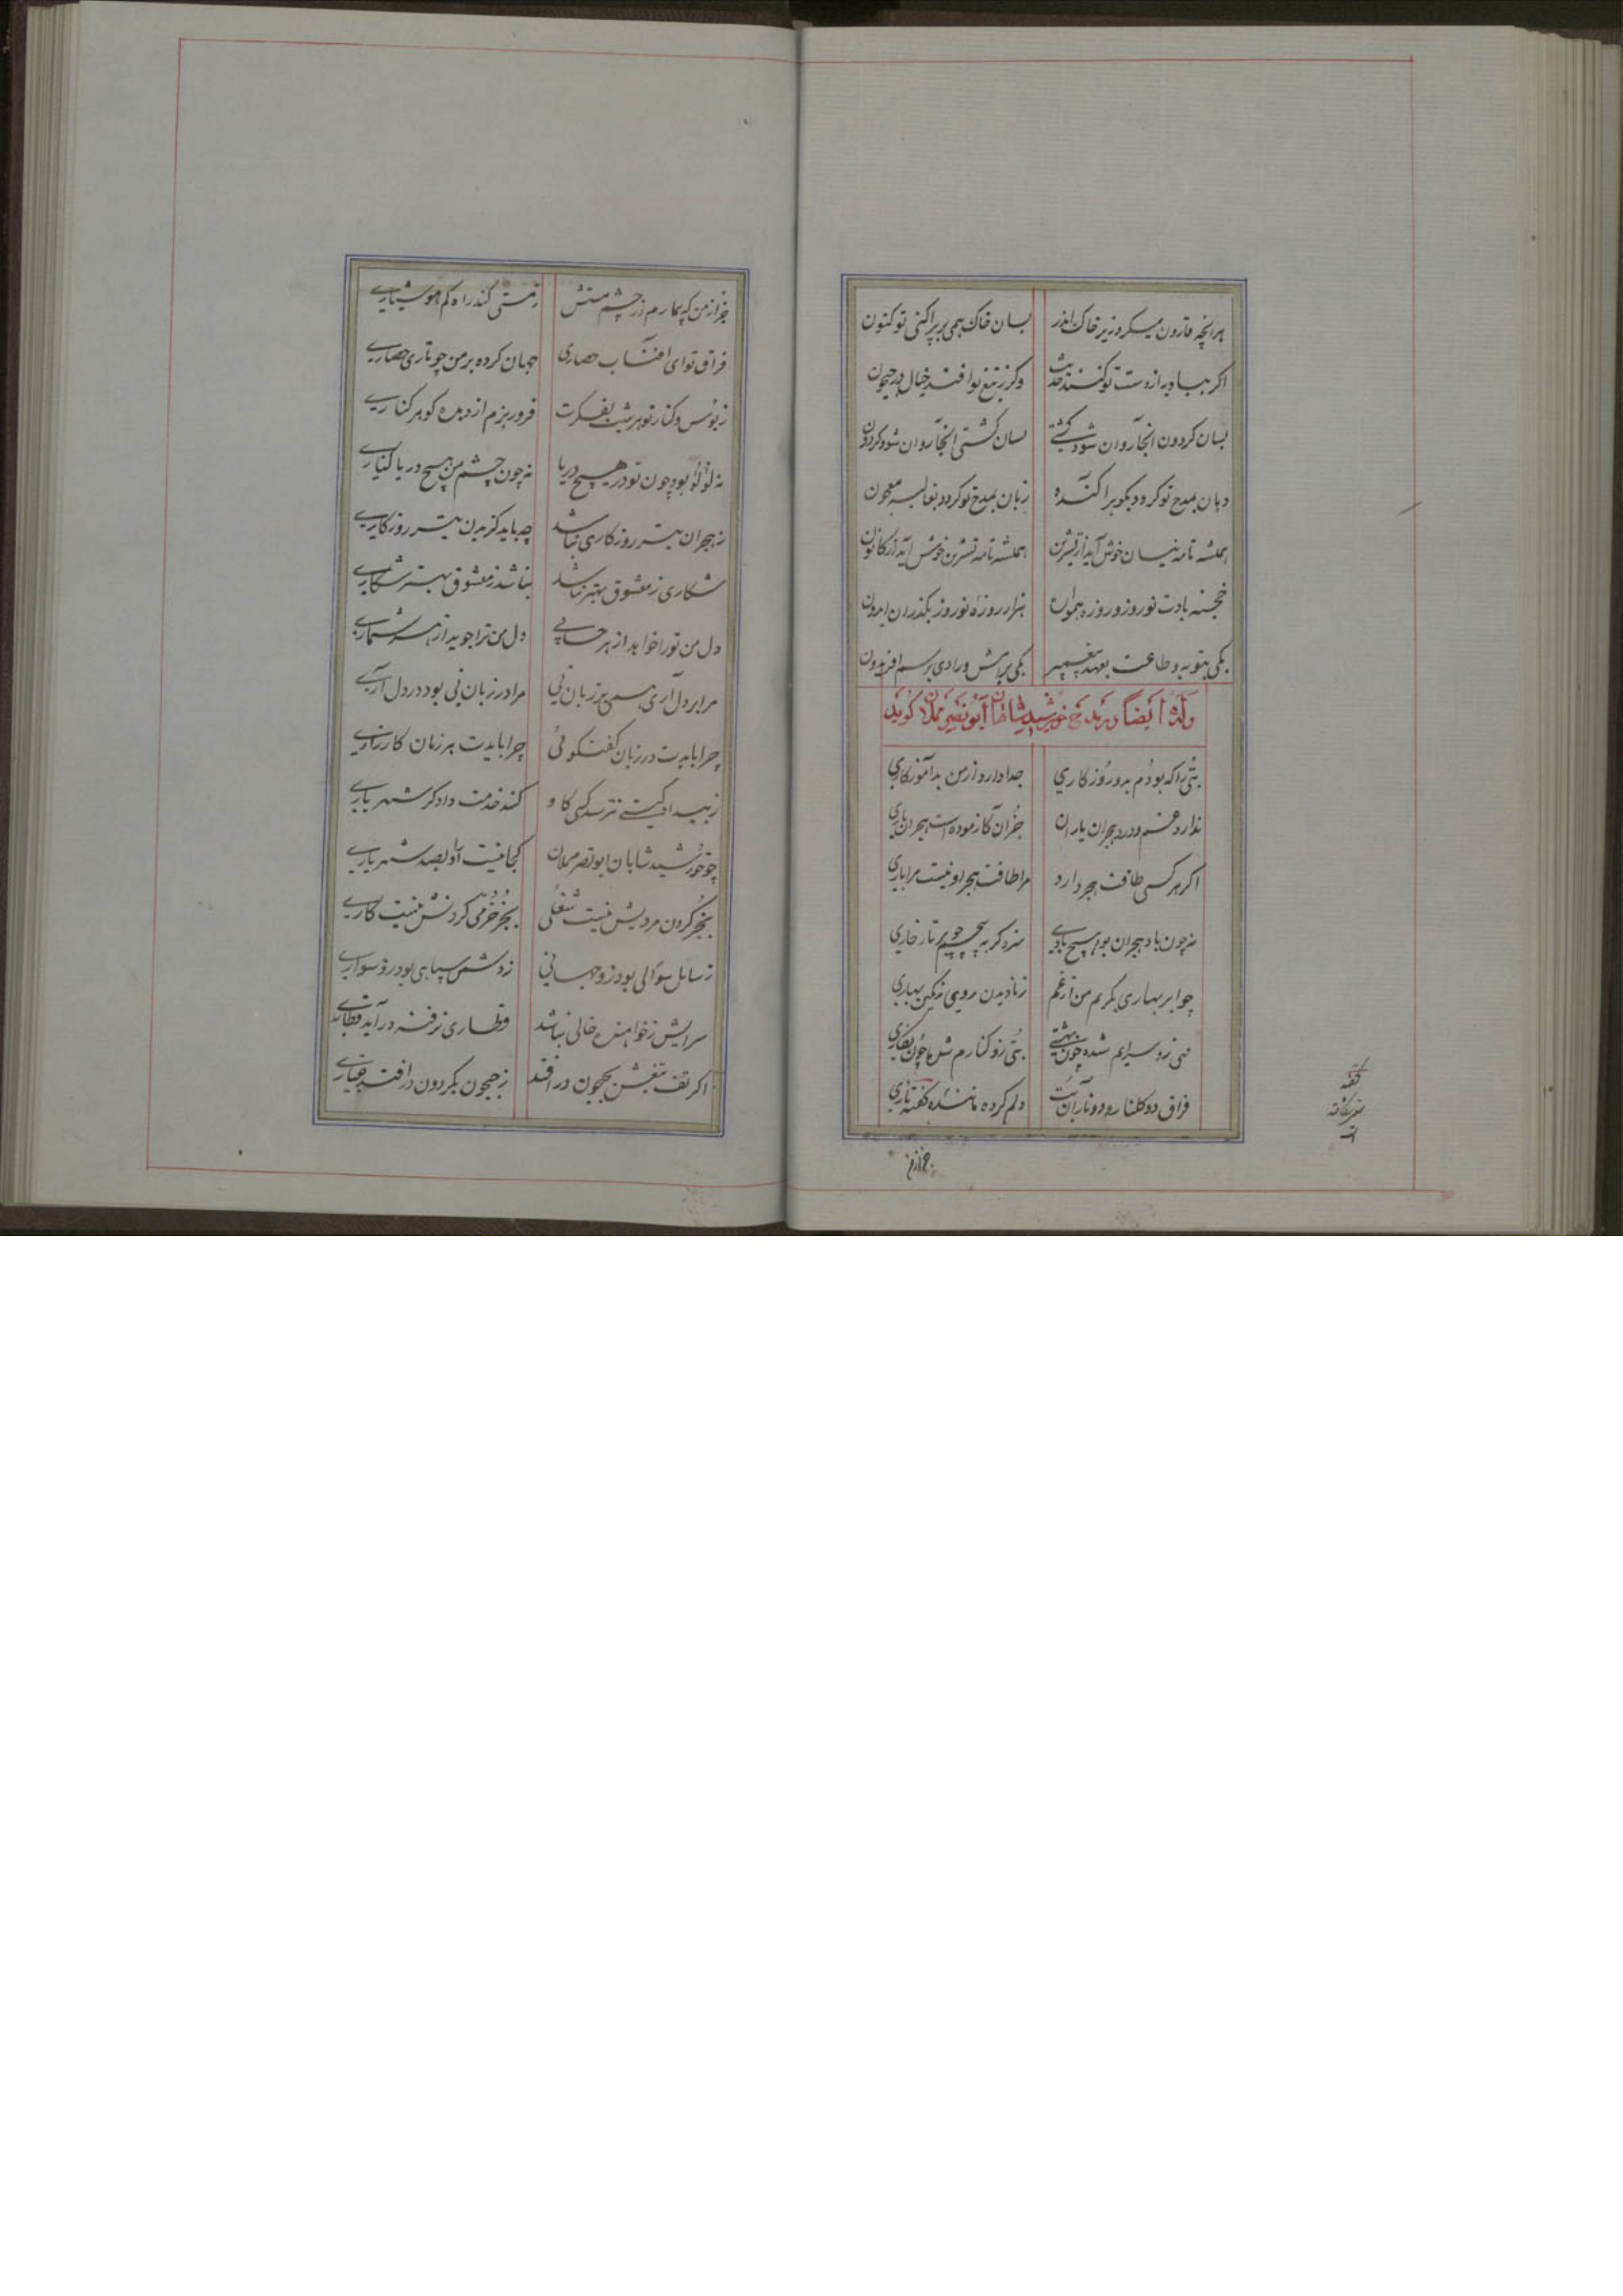 هرانچه قارون میکرد زیر خاک اندر بسان خاک همی بر پراکنی تو کنون
اکر ببادیه از دست تو کنند حدیث وکر ز تیغ تو افتد خیال در جیحون
بسان کردون آنجا روان شود کشتی بسان کشتی آنجا روان شود کردون
دهان بمدح تو کردد بکوهر آکنده زبان بمدح تو کردد بغالیه معجون
همیشه تا مه نیسان خوش آید از تشرین همیشه تا مه تشرین خوش آید از کانون
خجسته بادت نوروز و روزه همواره هزار روزه نوروز بکذران ایدون
یکی بتوبه و طاعت بعهد پیغمبر یکی برامش و رادی برسم افریدون
وله ایضا در مدح خورشید شاهان ابونصر مملان کوید
بتی را که بودم بدو روزکاری جدا دارد از من بد آموزکاری
نداند غم و درد هجران یاران جز آن کازموده است هجران یاری
اکر هر کسی طاقت هجر دارد مرا طاقت هجر او نیست باری
نه چون باد هجران بود هیچ بادی سزد کر به پیچم چو بر نار خاری
چو ابر بهاری بکریم من از غم ز نادیدن روی رنکین بهاری
می زو سرایم شده چون بهشتی بتی زو کنارم شده چون نکاری
فراق دو کلنار و دو نار آن بت دلم کرده ماننده کفته ناری
جز از من
کفته
جز از من که بیمارم از چشم مستش ز مستی کند راه کم هوشیاری
فراق تو ای آفتاب حصاری جهان کرده بر من چو تاری حصاری
ز بوس و کنار تو هر شب بفکرت فرو ریزم از دیده کوهر کناری
نه لؤلؤ بود چون تو در هیچ دریا نه چون چشم من هیچ دریا کناری
ز هجران بتر روزکاری نباشد چه باید کزیدن بتر روزکاری
شکاری ز معشوق بهتر نباشد نباشد ز معشوق بهتر شکاری
دل من تورا خواهد از هر حسابی دل من ترا جوید از هر شماری
مرا بر دل آری همی بر زبان نی مرا در زبان نی بود در دل آری
چرا بایدت در زبان کفتکوئی چرا بایدت هر زمان کارزاری
ز بیداد کیتی نترسد کسی کاو کند خدمت دادکر شهریاری
چو خورشید شاهان ابونصر مملان کجا نیست او را بصد شهریاری
بجز کردن مردیش نیست شغلی بجز خرمی کردنش نیست کاری
ز سایل سوالی بود زو جهانی ز دشمن سپاهی بود زو سواری
سرایش ز خواهنده خالی نباشد قطاری نرفته درآید قطاری
اکر تف تیغش بجیحون در افتد ز جیحون بکردون در افتد غباری